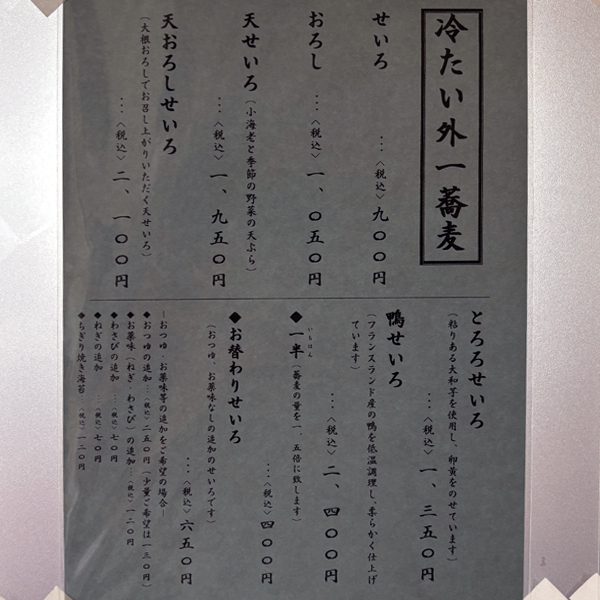 冷たい外一蕎麦
せいろ
…〈税込〉九〇〇円
おろし …〈税込〉一、〇五〇円
天せいろ（小海老と季節の野菜の天ぷら）
…〈税込〉一、九五〇円
天おろしせいろ
（大根おろしでお召し上がりいただく天せいろ）
…〈税込〉二、一〇〇円
とろろせいろ
（粘りある大和芋を使用し、卵黄をのせています）
…〈税込〉一、三五〇円
鴨せいろ
（フランスランド産の鴨を低温調理し、柔らかく仕上げ
ています）
…〈税込〉二、四〇〇円
◆一半（蕎麦の量を一、五倍に致します）
いちはん
…〈税込〉四〇〇円
◆お替わりせいろ
（おつゆ、お薬味なしの追加のせいろです）
…〈税込〉六五〇円
―おつゆ、お薬味等の追加をご希望の場合―
◆おつゆの追加…〈税込〉二五〇円（少量ご希望は一三〇円）
◆お薬味（ねぎ・わさび）の追加…〈税込〉一二〇円
◆わさびの追加 …〈税込〉七〇円
◆ねぎの追加 …〈税込〉七〇円
◆ちぎり焼き海苔 〈税込〉一二〇円